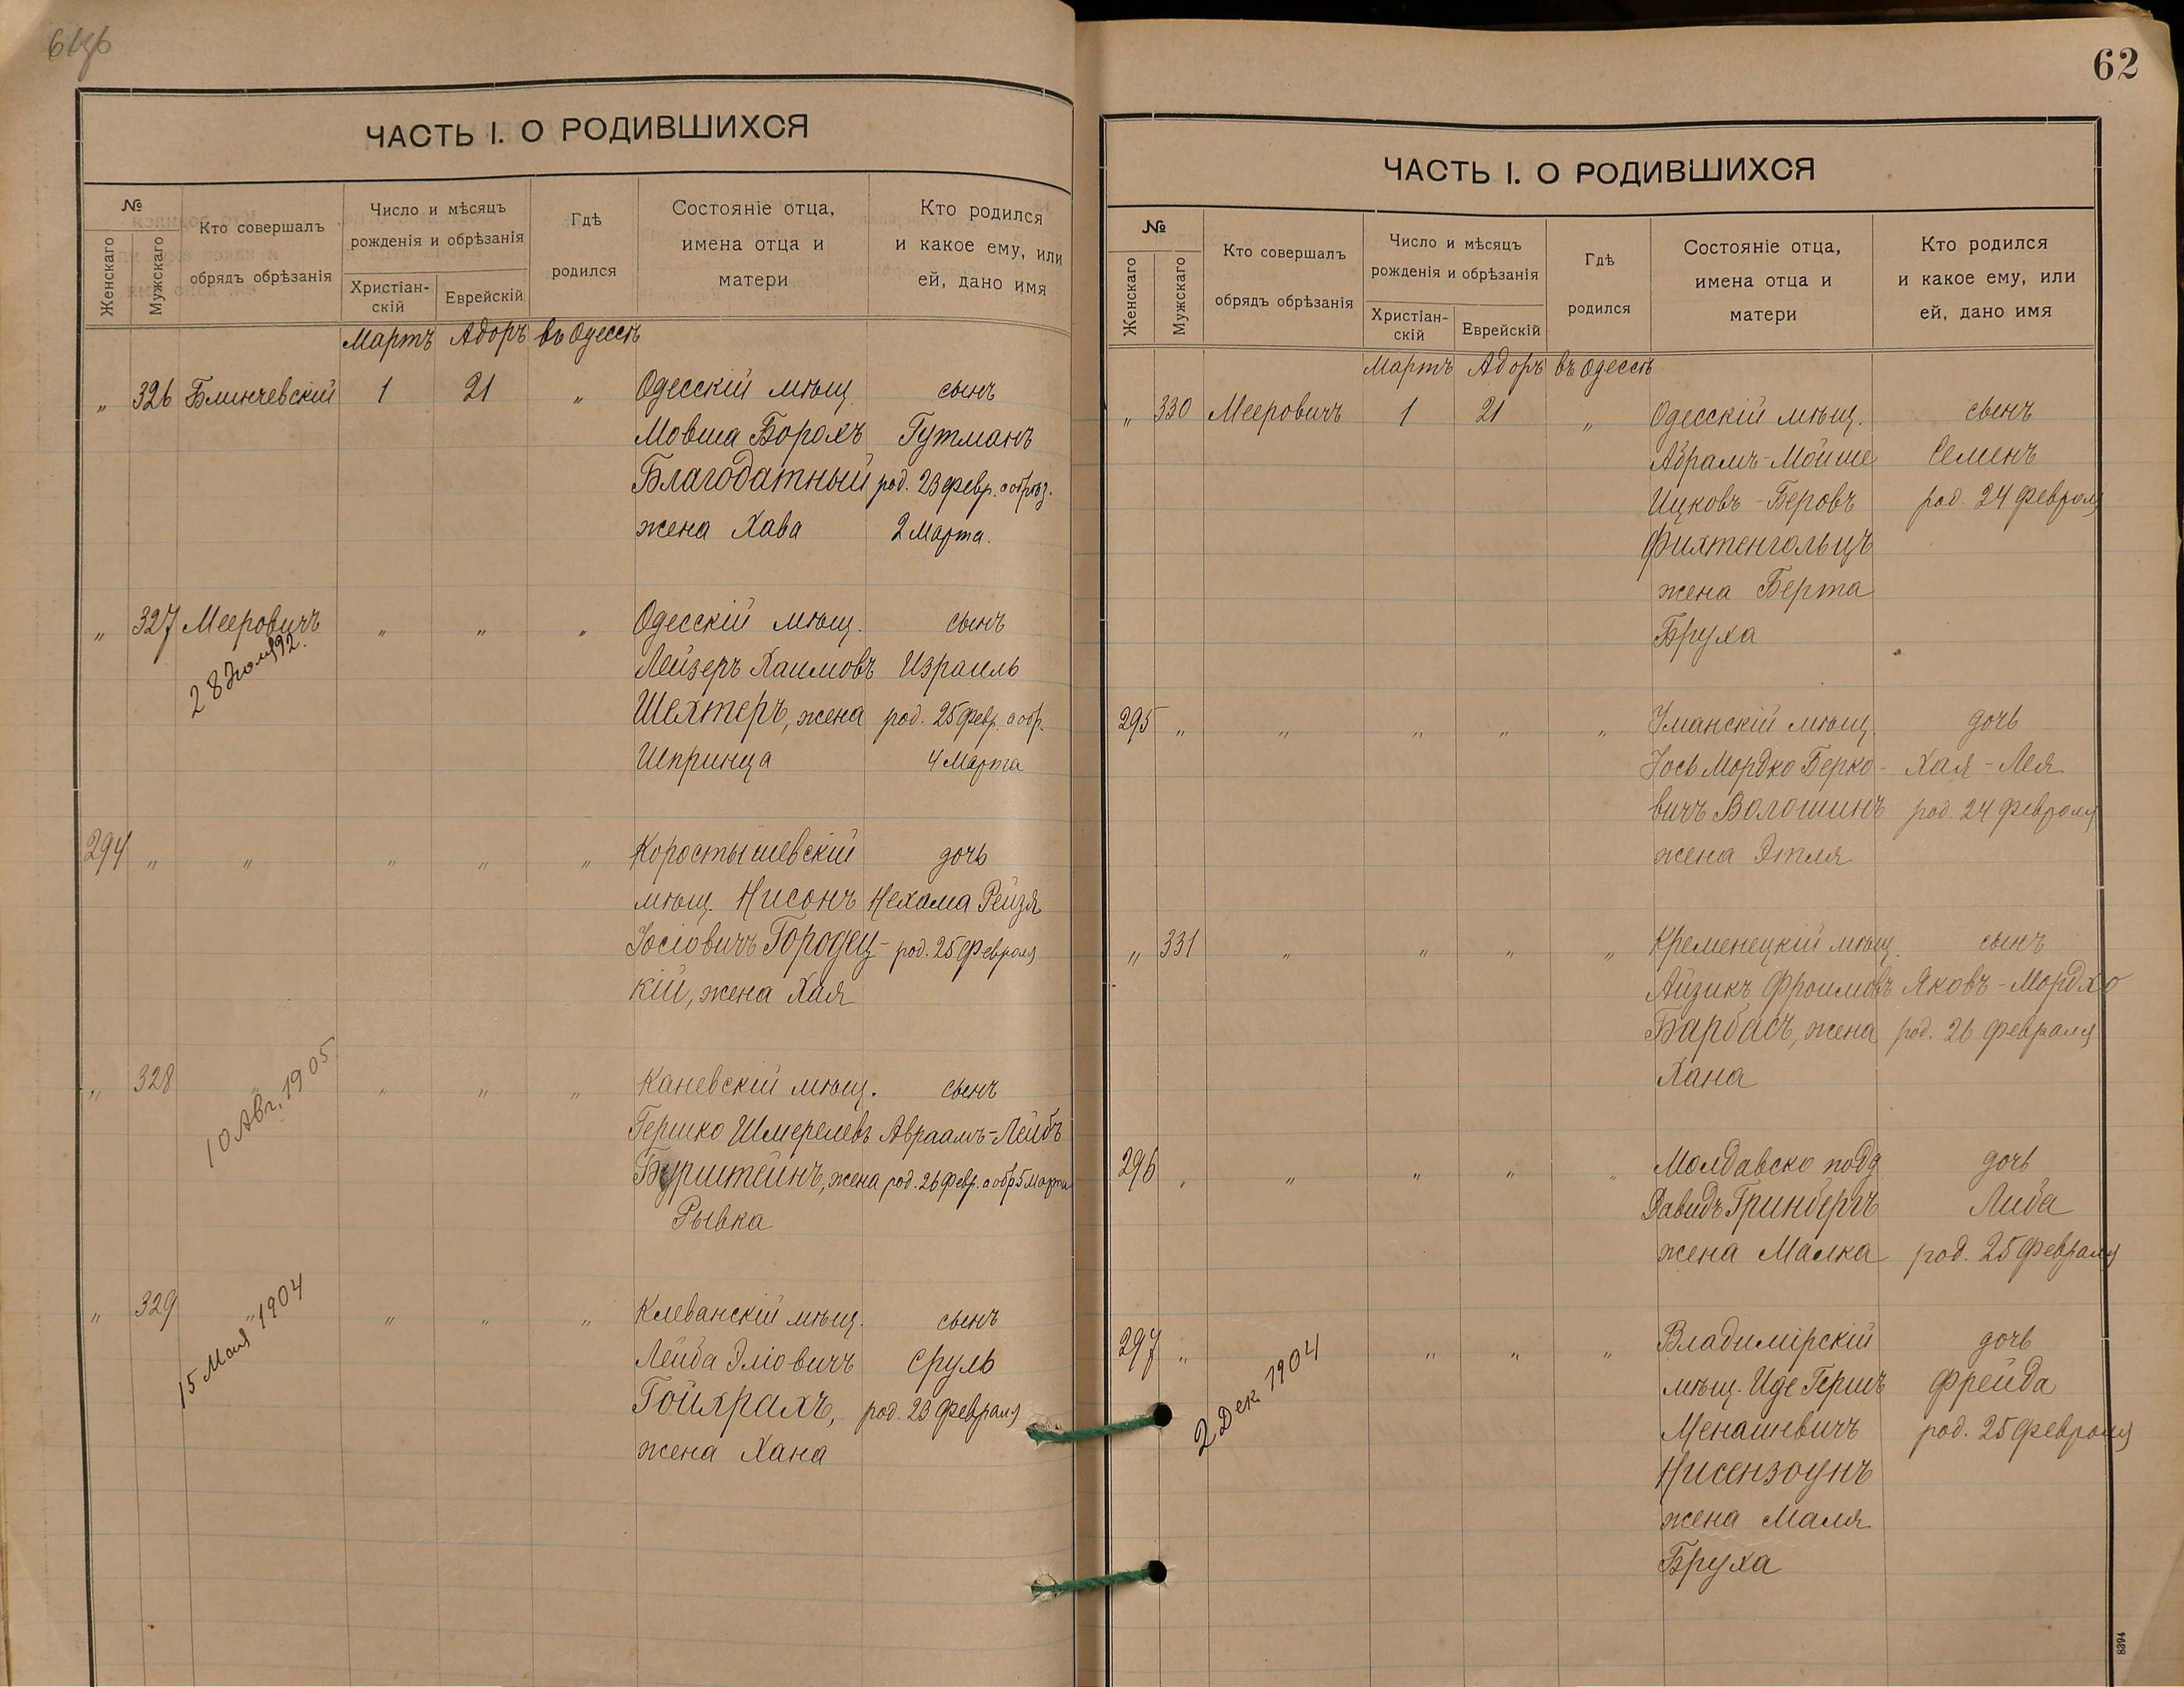 ЧАСТЬ I. О РОДИВШИХСЯ
№
Женскаго
Мужскаго
Кто совершалъ
обрядъ обрѣзанія
Число и мѣсяцъ
рожденія и обрѣзанія
Христіан-
скій
Еврейскій
Гдѣ
родился
Состояніе отца,
имена отца и
матери
Кто родился
и какое ему, или
ей, дано имя
Мартъ Адоръ въ Одессѣ
„ 326 Блинчевскій 1 21 „ Одесскій мѣщ. сынъ
Мовша Борохъ Гутманъ
Благодатный род. 23 февр. а обрѣз.
жена Хава 2 Марта.
„ 327 Мееровичъ „ „ „ Одесскій мѣщ. сынъ
Лейзеръ Хаимовъ Израиль
Шехтеръ, жена род. 25 февр. а обр.
Шпринца 4 Марта
294 „ „ „ „ „ Коростышевскій дочь
мѣщ. Нисонъ Нехама Рейзя
Іосіовичъ Городец- род. 25 Февраля
кій, жена Хая
„ 328 „ „ „ „ Каневскій мѣщ. сынъ
10 Авг. 1905
Гершко Шмерелевъ Авраамъ-Лейбъ
Бурштейнъ, жена род. 26 февр. а обр 5 Марта
Рывка
„ 329 „ „ „ „ Клеванскій мѣщ. сынъ
15 Мая 1904
Лейба Эліовичъ Сруль
Гойхрахъ, род. 23 Февраля
жена Хана
62
ЧАСТЬ I. О РОДИВШИХСЯ
№
Женскаго
Мужскаго
Кто совершалъ
обрядъ обрѣзанія
Число и мѣсяцъ
рожденія и обрѣзанія
Христіан-
скій
Еврейскій
Гдѣ
родился
Состояніе отца,
имена отца и
матери
Кто родился
и какое ему, или
ей, дано имя
Мартъ Адоръ въ Одессѣ
„ 330 Мееровичъ 1 21 „ Одесскій мѣщ. сынъ
Абрамъ-Мойше Семенъ
Ицковъ-Беровъ род. 24 Февраля
Фихтенгольцъ
жена Берта
Бруха
295 „ „ „ „ „ Уманскій мѣщ. дочь
Іось Мордко Берко- Хая-Лея
вичъ Волошинъ род. 24 Февраля
жена Этля
„ 331 „ „ „ „ Кременецкій мѣщ. сынъ
Айзикъ Фроимовъ Яковъ-Мордхо
Барбасъ, жена род. 26 Февраля
Хана
296 „ „ „ „ „ Молдавско подд дочь
Давидъ Гринбергъ Либа
жена Малка род. 25 Февраля
297 „ „ „ „ Владимірскій дочь
2 Дек 1904
мѣщ. Иде Гершъ Фрейда
Менашевичъ род. 25 Февраля
Нисензоунъ
жена Маля
Бруха
8394